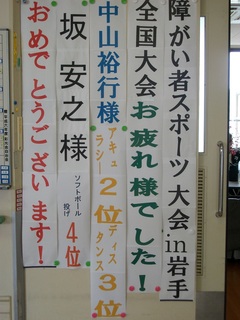 障がい者スポーツ大会in岩手
全国大会お疲れ様でした!
中山裕行様 アキュラシー2位 ディスタンス3位
坂 安之様 ソフトボール投げ 4位
おめでとうございます!